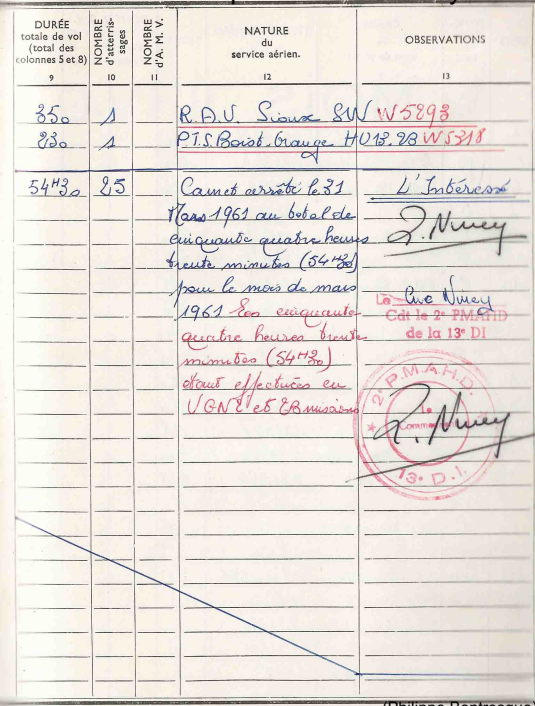 DURÉE totale de vol (total des colonnes 5 et 8)
NOMBRE d'atterrissages
NOMBRE d'A. M. V.
NATURE du service aérien.
OBSERVATIONS
9 10 11 12 13
1 R.A.V. Sioux SW W5293
230 1 P.T.S. Boist. Orange HU13.2B W5318
54H30 25 Carnet arrêté le 31 L'Intéressé
Mars 1961 au total de
cinquante quatre heures
trente minutes (54H30)
pour le mois de mars
1961 Les cinquante
quatre heures trente
minutes (54H30)
étant effectuées en
VGNE et 2B missions
Le
Cdt le 2e PMAHD
de la 13e DI
* 2e P.M.A.H.D. *
Le
13e D.I.